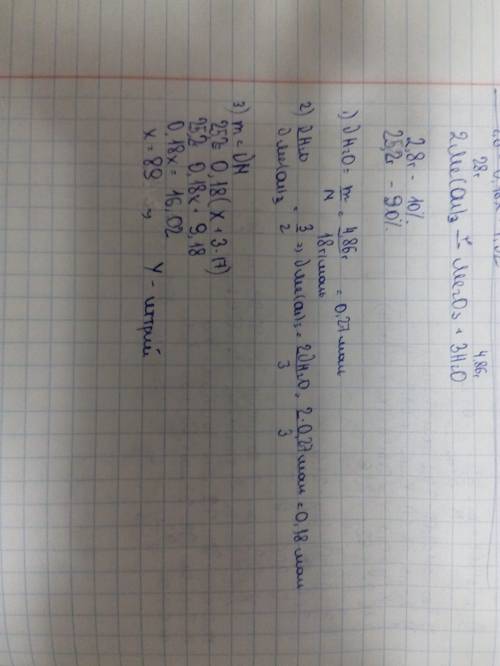 28г 4,86г
2Me(OH)₃ →t Me₂O₃ + 3H₂O
2,8г - 10%
25,2г - 90%
1) νH₂O = m/M = 4,86г/18г/моль = 0,27 моль
2) νH₂O/νMe(OH)₃ = 3/2 => νMe(OH)₃ = 2νH₂O/3 = 2·0,27 моль/3 = 0,18 моль
3) m = νM
25,2 = 0,18(x + 3·17)
25,2 = 0,18x + 9,18
0,18x = 16,02
x = 89 => Y - иттрий